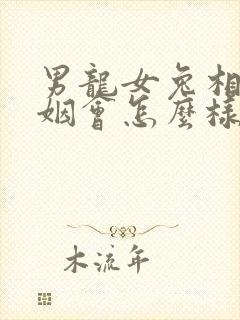 男龍女兔相
姻會怎麼樣
木流年